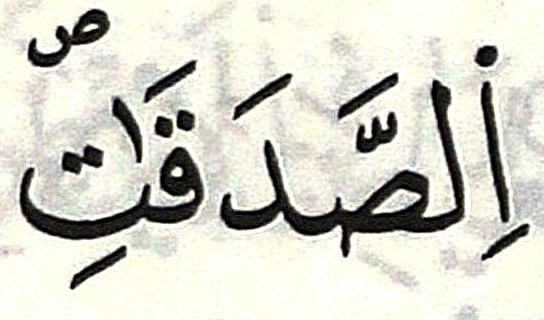 اِلصَّدَقَٰتِ ص